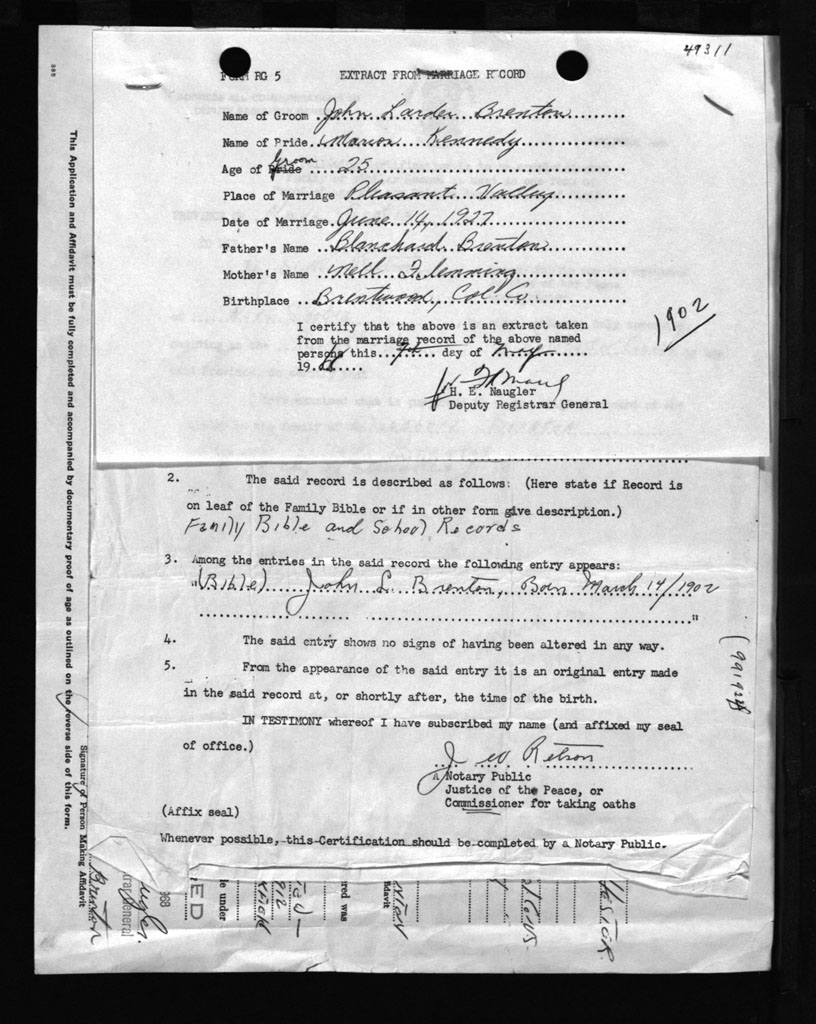 49311
FORM RG 5 EXTRACT FROM MARRIAGE RECORD
Name of Groom John Larder Brenton
Name of Pride Marion Kennedy
Age of Bride Groom 25
Place of Marriage Pleasant Valley
Date of Marriage June 14, 1927
Father's Name Blanchard Brenton
Mother's Name Nell Flemming
Birthplace Brentwood, Col. Co.
1902
I certify that the above is an extract taken
from the marriage record of the above named
persons this day of May
19
H. E. Naugler
Deputy Registrar General
2. The said record is described as follows: (Here state if Record is
on leaf of the Family Bible or if in other form give description.)
Family Bible and School Records
3. Among the entries in the said record the following entry appears:
"(Bible) John L. Brenton, Born March 14/1902
"
4. The said entry shows no signs of having been altered in any way.
5. From the appearance of the said entry it is an original entry made
in the said record at, or shortly after, the time of the birth.
IN TESTIMONY whereof I have subscribed my name (and affixed my seal
of office.)
A Notary Public
Justice of the Peace, or
Commissioner for taking oaths
(Affix seal)
Whenever possible, this Certification should be completed by a Notary Public.
This Application and Affidavit must be fully completed and accompanied by documentary proof of age as outlined on the reverse side of this form.
Signature of Person Making Affidavit
Brenton